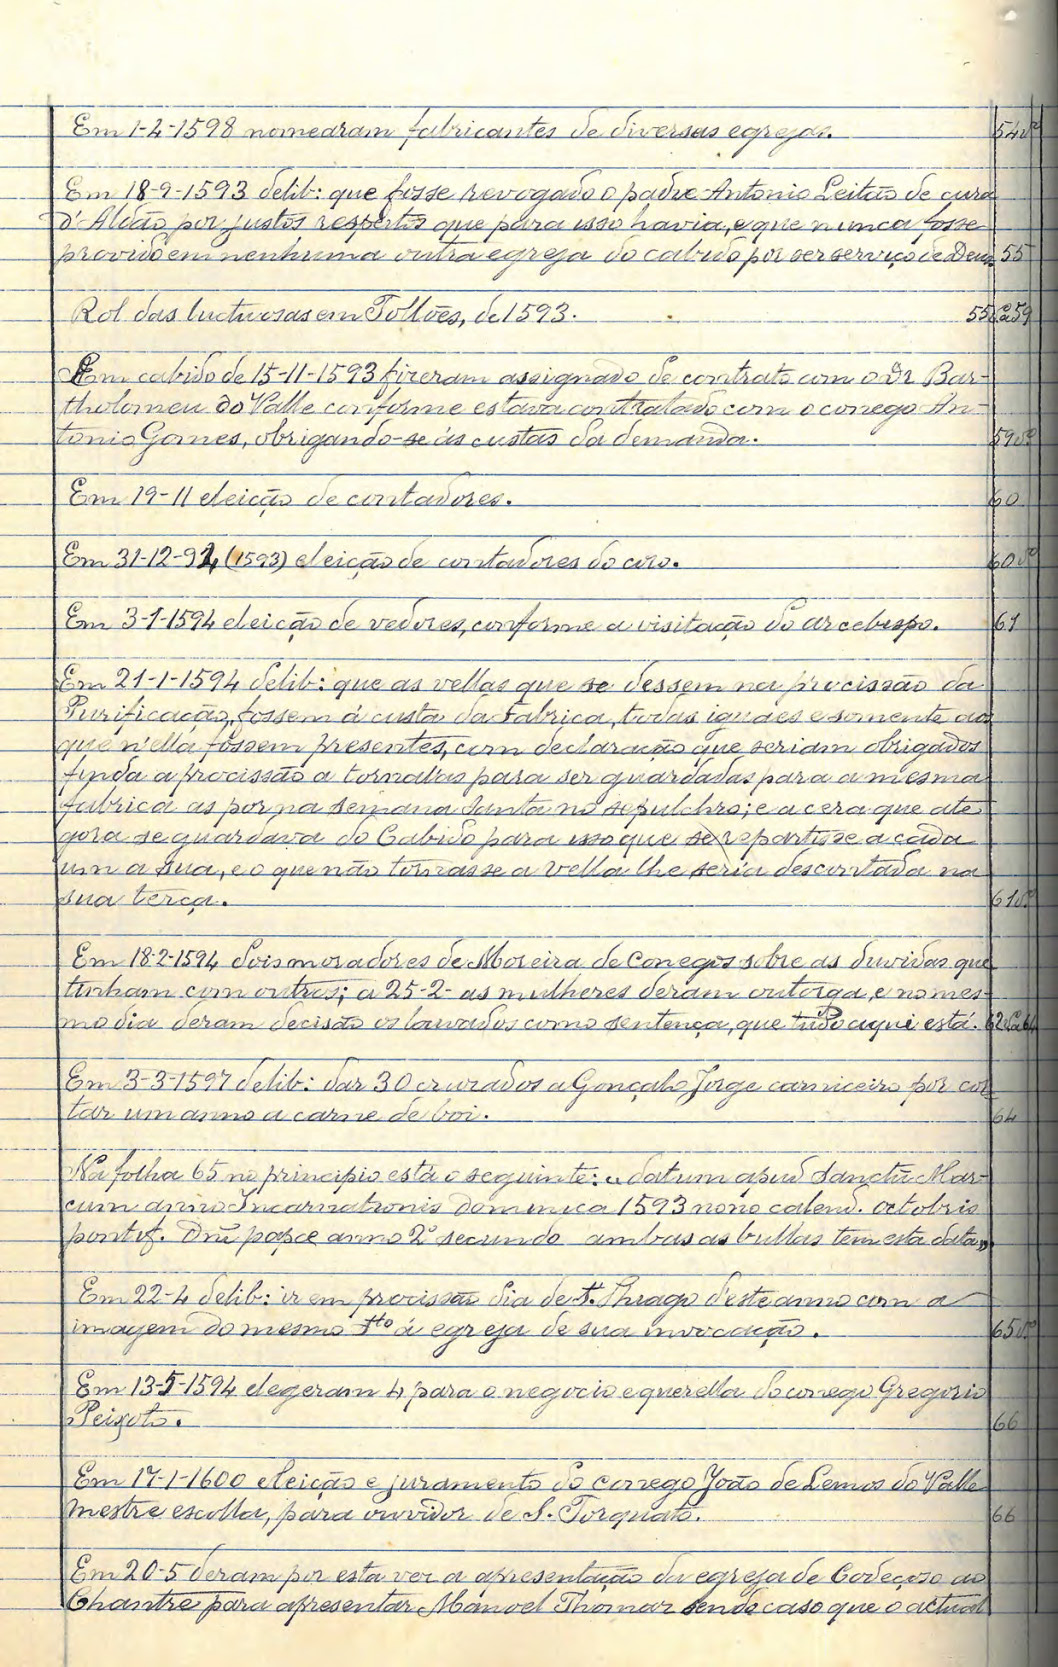 Em 1-4-1598 nomearam fabricantes de diversas egrejas. 54vº
Em 18-9-1593 delib: que fosse revogado o padre Antonio Leitão de cura
d'Aldão por justos respeitos que para isso havia, e que nunca fosse
provido em nenhuma outra egreja do cabido por ser serviço de Deus 55
Rol das luctuosas em Tolões, de 1593. 55vº a 59
Em cabido de 15-11-1593 fizeram assignado de contrato com o Dr Bar-
tholomeu do Valle conforme estava contratado com o conego An-
tonio Gomes, obrigando-se ás custas da demanda. 59vº
Em 19-11 eleição de contadores. 60
Em 31-12-94 (1593) eleição de contadores do coro. 60vº
Em 3-1-1594 eleição de vedores, conforme a visitação do arcebispo. 61
Em 21-1-1594 delib: que as vellas que se dessem na procissão da
Purificação, fossem á custa da Fabrica, todas iguaes e somente aos
que n'ella fossem presentes, com declaração que seriam obrigados
finda a procissão a tornalas para ser guardadas para a mesma
fabrica as por na semana santa no sepulchro; e a cera que ate
gora se guardava do Cabido para isso que se repartisse a cada
um a sua, e o que não tornasse a vella lhe seria descontada na
sua terça. 61vº
Em 18-2-1594 dois moradores de Moreira de Conegos sobre as duvidas que
tinham com outros; a 25-2- as mulheres deram outorga, e no mes-
mo dia deram decisão os louvados como sentença, que tudo aqui está. 62vº a 64
Em 3-3-1597 delib: dar 30 cruzados a Gonçalo Jorge carniceiro por cor
tar um anno a carne de boi. 64
Na folha 65 no principio está o seguinte: « datum apud Sanctũ Mar-
cum anno Incarnationis dominica 1593 nono calend. octobris
pontif. Dñi papce anno 2º secundo ambas as bullas tem esta data»
Em 22-4 delib: ir em procissão dia de S. Thiago d'este anno com a
imagem do mesmo Stº á egreja de sua invocação. 65vº
Em 13-5-1594 elegeram 4 para o negocio e querella do conego Gregorio
Peixoto. 66
Em 17-1-1600 eleição e juramento do conego João de Lemos do Valle
mestre escolla, para ouvidor de S. Torquato. 66
Em 20-5 deram por esta vez a apresentação da egreja de Codeçoso ao
Chantre para apresentar Manoel Thomaz sendo caso que o actual